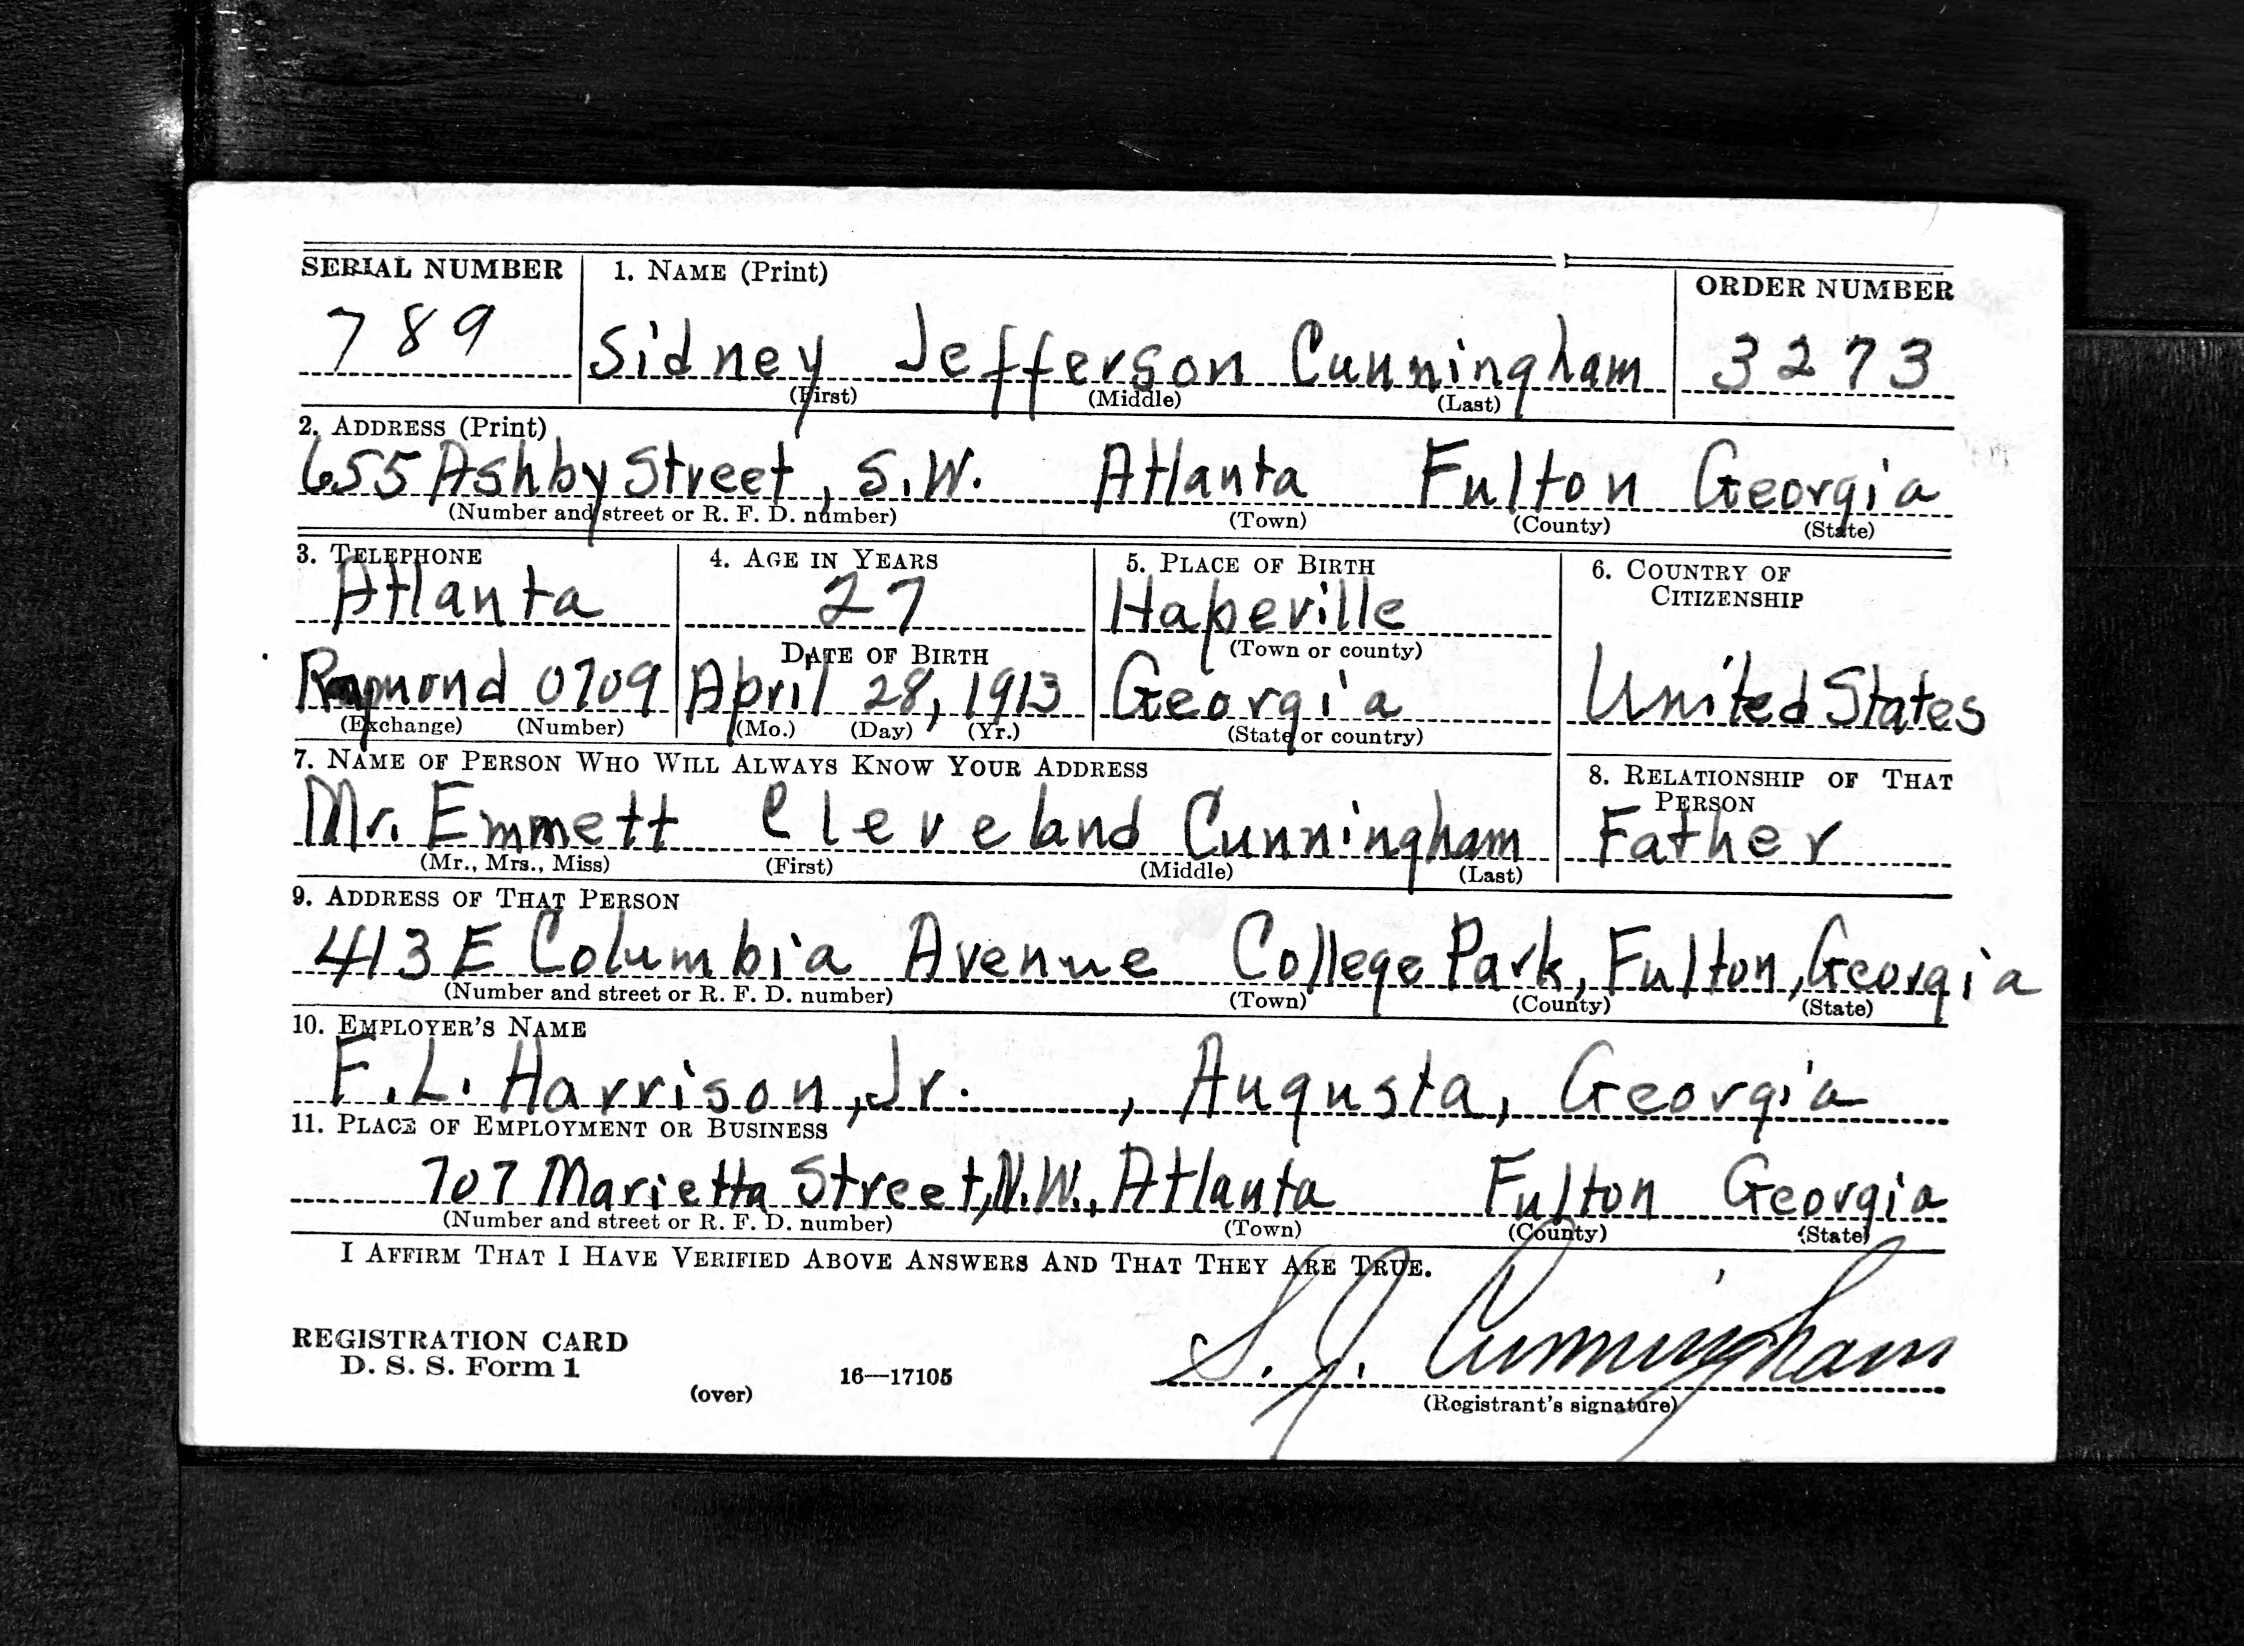 SERIAL NUMBER 1. NAME (Print) ORDER NUMBER
789 Sidney Jefferson Cunningham 3273
(First) (Middle) (Last)
2. ADDRESS (Print)
655 Ashby Street, S.W. Atlanta Fulton Georgia
(Number and street or R. F. D. number) (Town) (County) (State)
3. TELEPHONE 4. AGE IN YEARS 5. PLACE OF BIRTH 6. COUNTRY OF CITIZENSHIP
Atlanta 27 Hapeville
DATE OF BIRTH (Town or county)
Raymond 0709 April 28, 1913 Georgia United States
(Exchange) (Number) (Mo.) (Day) (Yr.) (State or country)
7. NAME OF PERSON WHO WILL ALWAYS KNOW YOUR ADDRESS 8. RELATIONSHIP OF THAT PERSON
Mr. Emmett Cleveland Cunningham Father
(Mr., Mrs., Miss) (First) (Middle) (Last)
9. ADDRESS OF THAT PERSON
413 E Columbia Avenue College Park, Fulton, Georgia
(Number and street or R. F. D. number) (Town) (County) (State)
10. EMPLOYER'S NAME
F.L. Harrison, Jr. , Augusta, Georgia
11. PLACE OF EMPLOYMENT OR BUSINESS
707 Marietta Street, N.W., Atlanta Fulton Georgia
(Number and street or R. F. D. number) (Town) (County) (State)
I AFFIRM THAT I HAVE VERIFIED ABOVE ANSWERS AND THAT THEY ARE TRUE.
REGISTRATION CARD
D. S. S. Form 1 S. J. Cunningham
(over) 16—17105 (Registrant's signature)